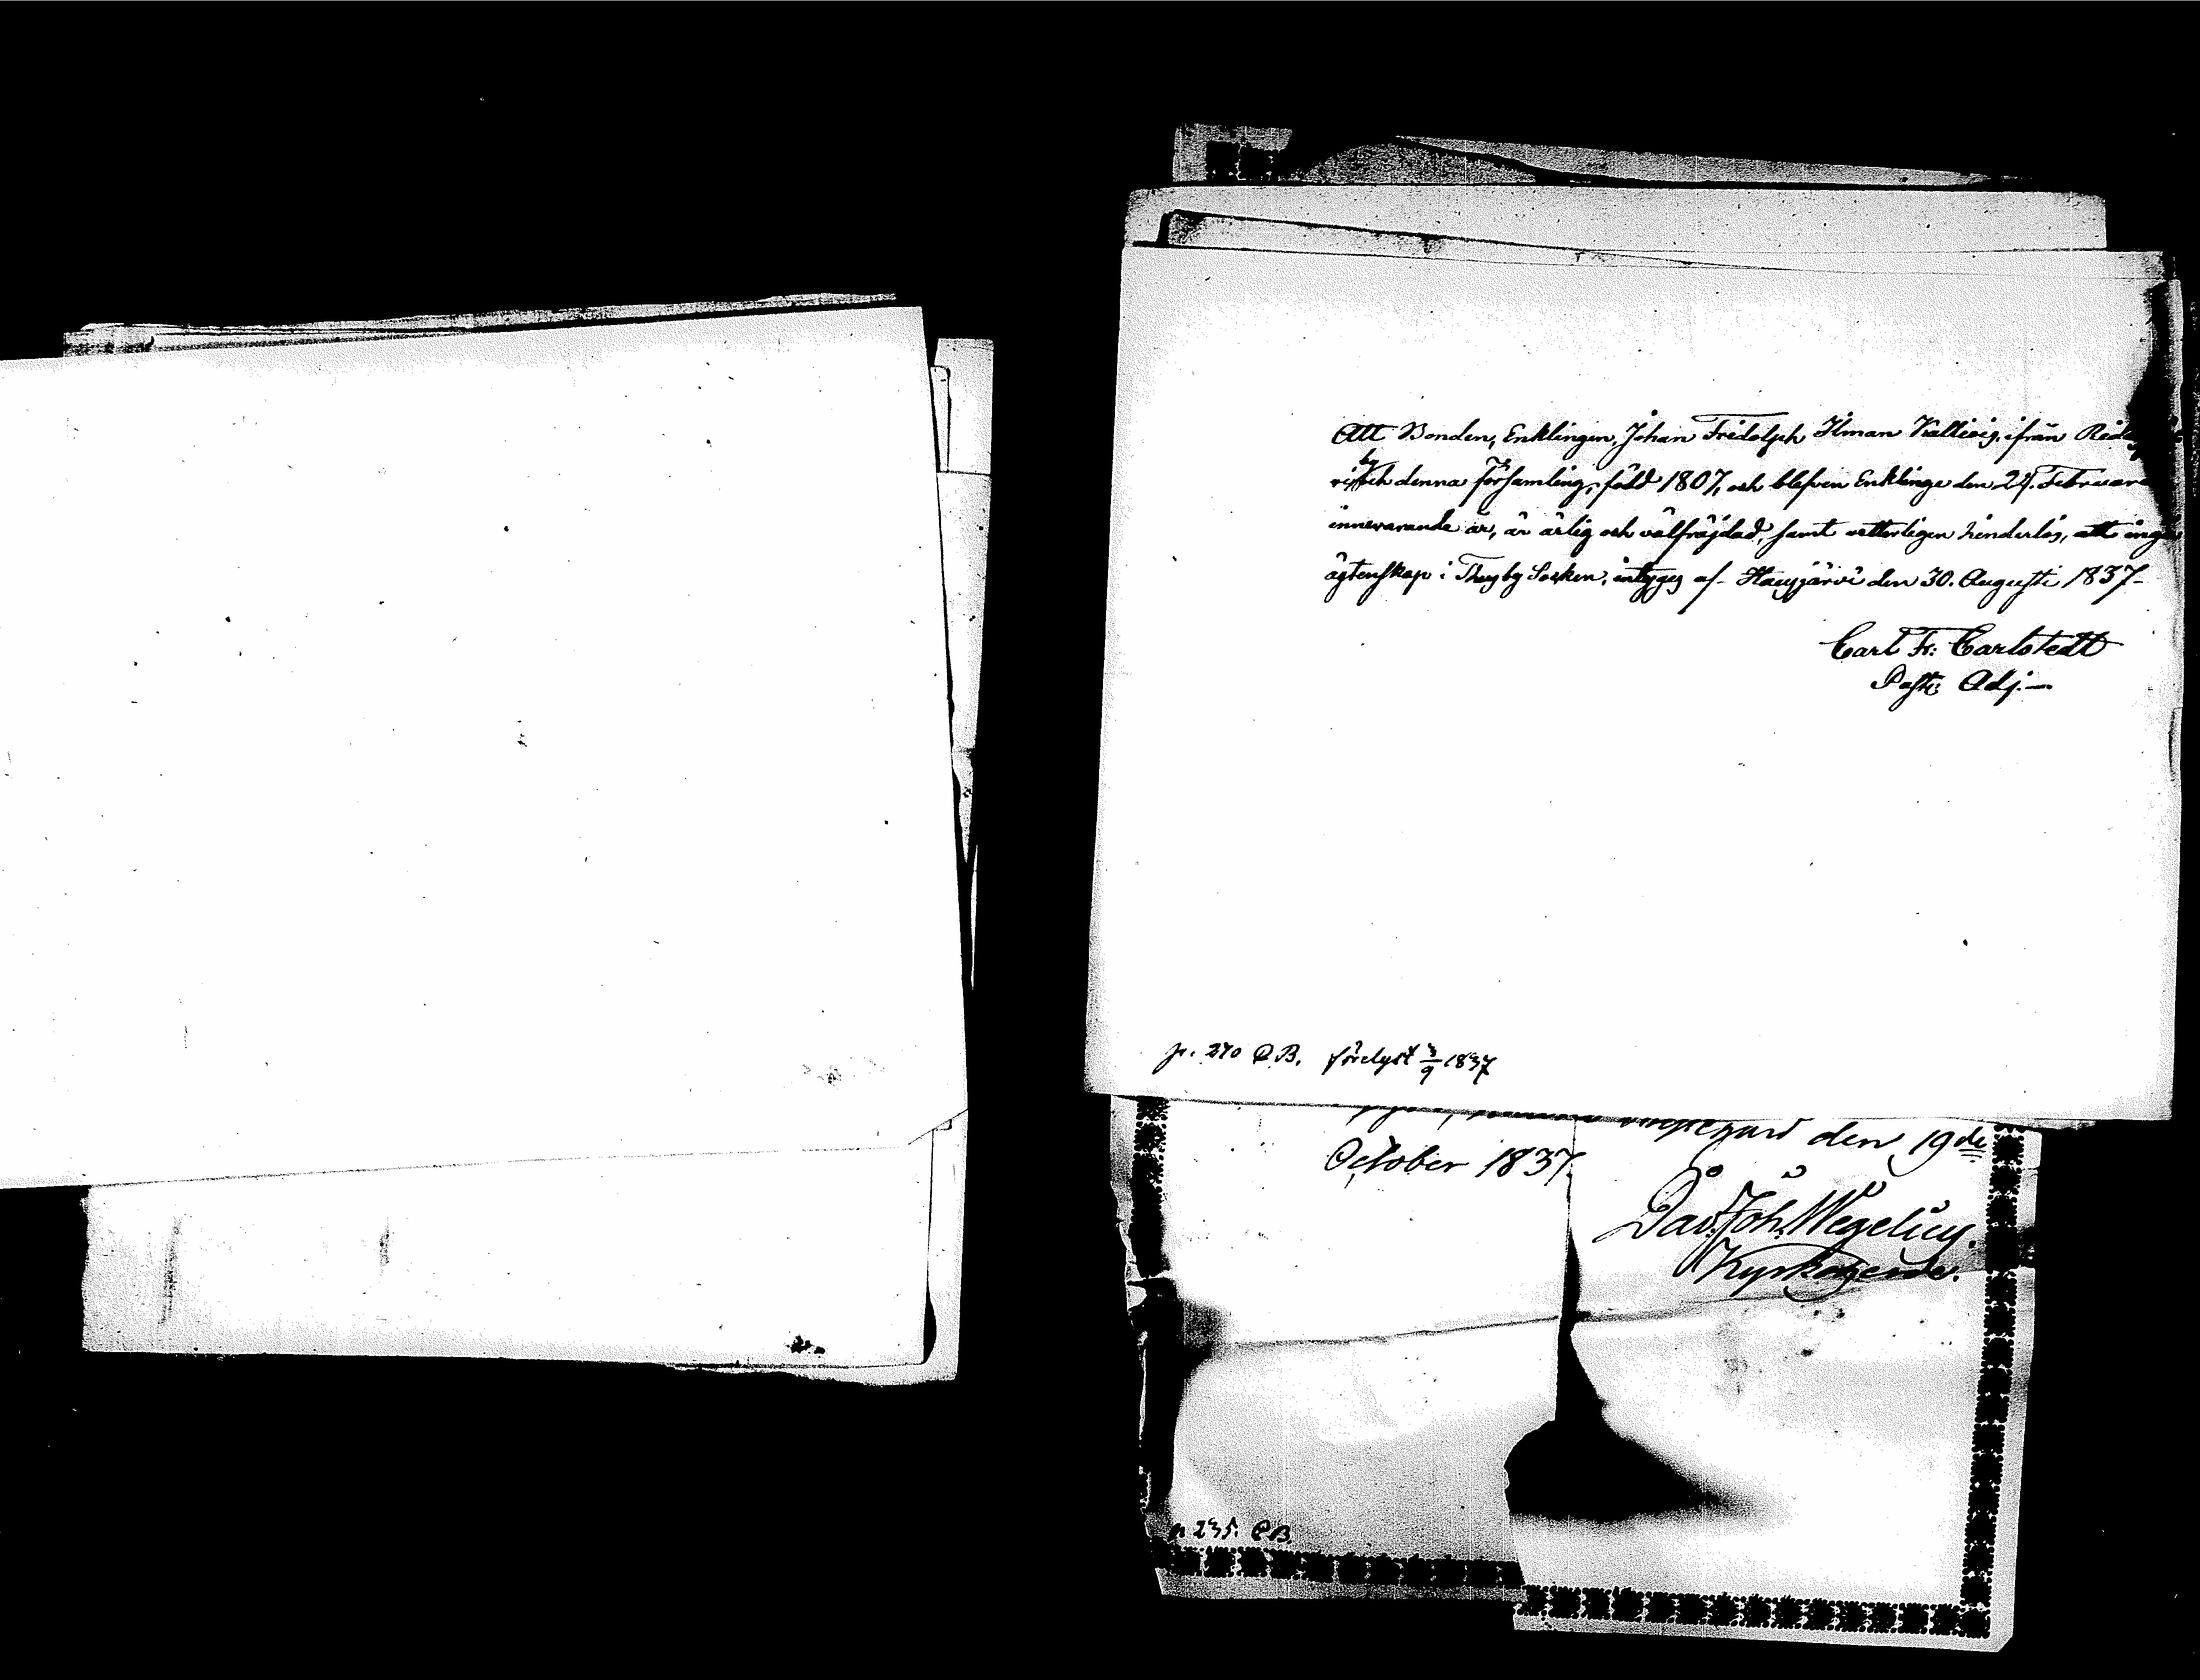 Att Bonden, Enklingen, Johan Fridolph Ilman Kallioig, ifrån
by denna församling, född 1807, och blefven Enklinge den 27. Februarii
innevarande år, är ärlig och välfräjdad, samt vetterligen hinderlös, att ingå
ägtenskap i Thusby Socken, intygas af Hausjärvi den 30. Augusti 1837-
Carl Fr: Carlstedt
Past: Adj.-
p. 270 C.B. förelyst 3/9 1837
den 19de
October 1837.
Dav. Joh. Wegelius.
Kyrkoherde.
p 235. C.B.